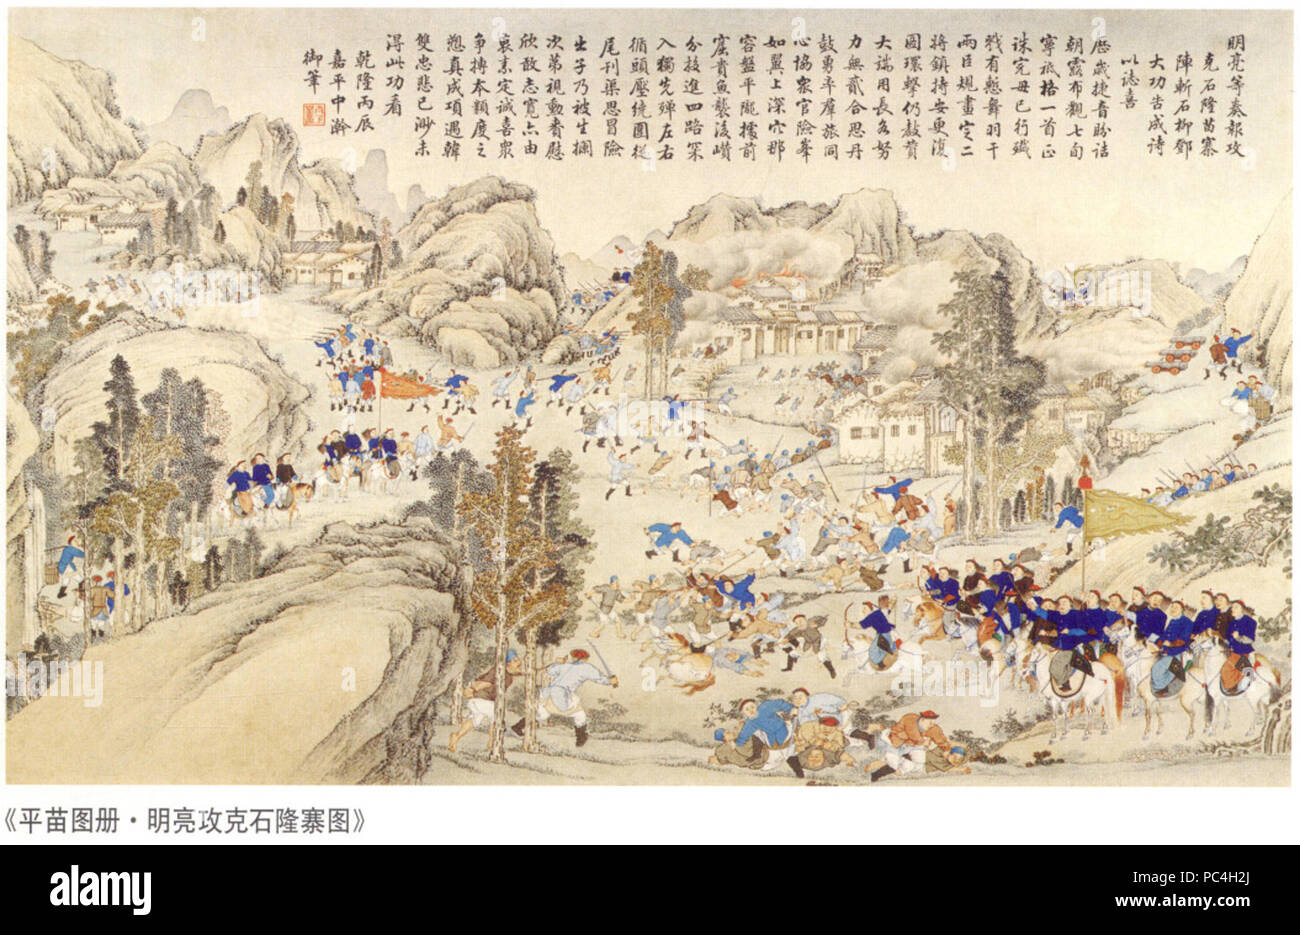 明亮等奏報攻
克石隆苗寨
陣斬石柳鄧
大功告成詩
以誌喜
歷歲捷音盼詰
朝露布觀七旬
寧祗格一首正
誅完毋已行殲
戮有慙舞羽干
兩臣規畫定二
將鎮持安更復
圖環擊仍教賁
大端用長各努
力無貳合思丹
鼓勇率羣旅同
心協衆官險峯
如翼上深穴那
容盤平隴擾前
窟貴魚襲後巑
分投進四路深
入獨先殫左右
循頭壓繞圍從
尾刊渠思冒險
出乎乃被生擱
次第視勳看慰
欣敵志寬亦由
衷素定誠喜衆
争摶本類度之
愬真成項遇韓
雙忠悲已渺未
得此功看
乾隆丙辰
嘉平中澣
御筆
《平苗图册·明亮攻克石隆寨图》
alamy
Image ID: PC4H2J
www.alamy.com